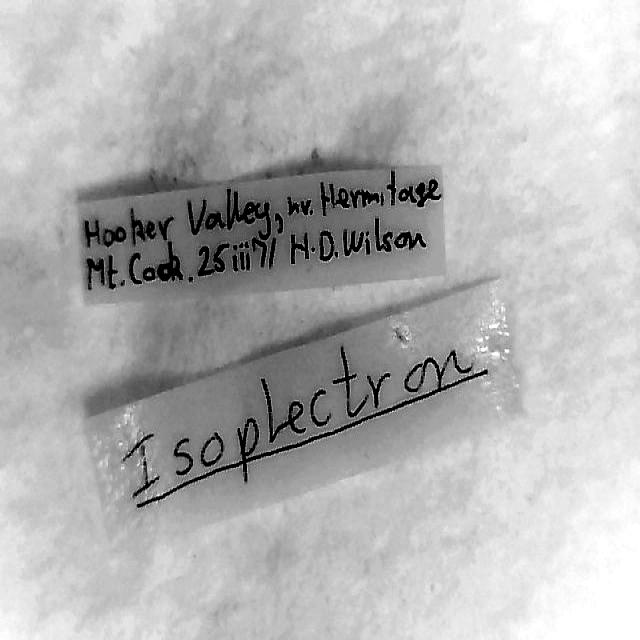 Hooker Valley, nr. Hermitage
Mt. Cook. 25 iii 71 H.D. Wilson
Isoplectron